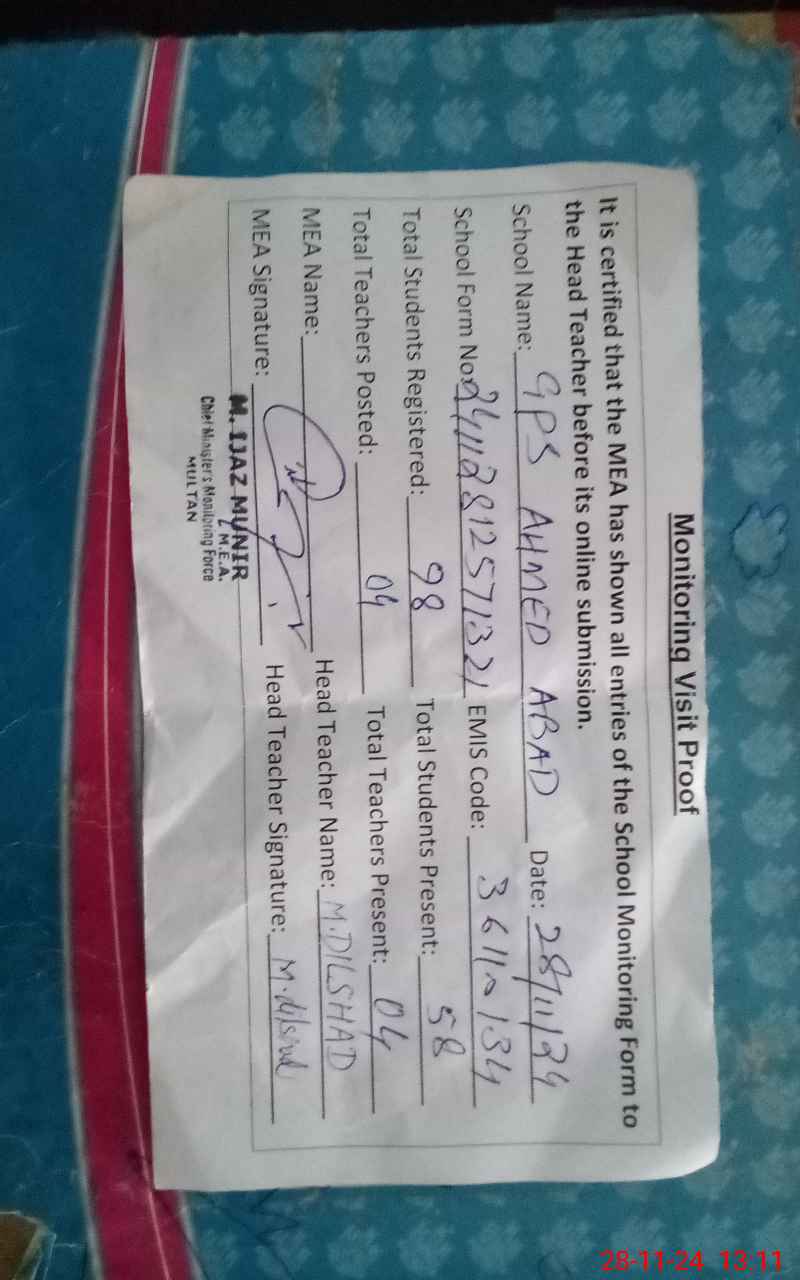 Monitoring Visit Proof
It is certified that the MEA has shown all entries of the School Monitoring Form to
the Head Teacher before its online submission.
School Name: GPS AHMED ABAD Date: 28/11/24
School Form No: 241128125711321 EMIS Code: 36110134
Total Students Registered: 98 Total Students Present: 58
Total Teachers Posted: 04 Total Teachers Present: 04
MEA Name: Head Teacher Name: M.DILSHAD
MEA Signature: Head Teacher Signature: M.dilshad
M. IJAZ MUNIR
M.E.A.
Chief Minister's Monitoring Force
MULTAN
28-11-24 13:11